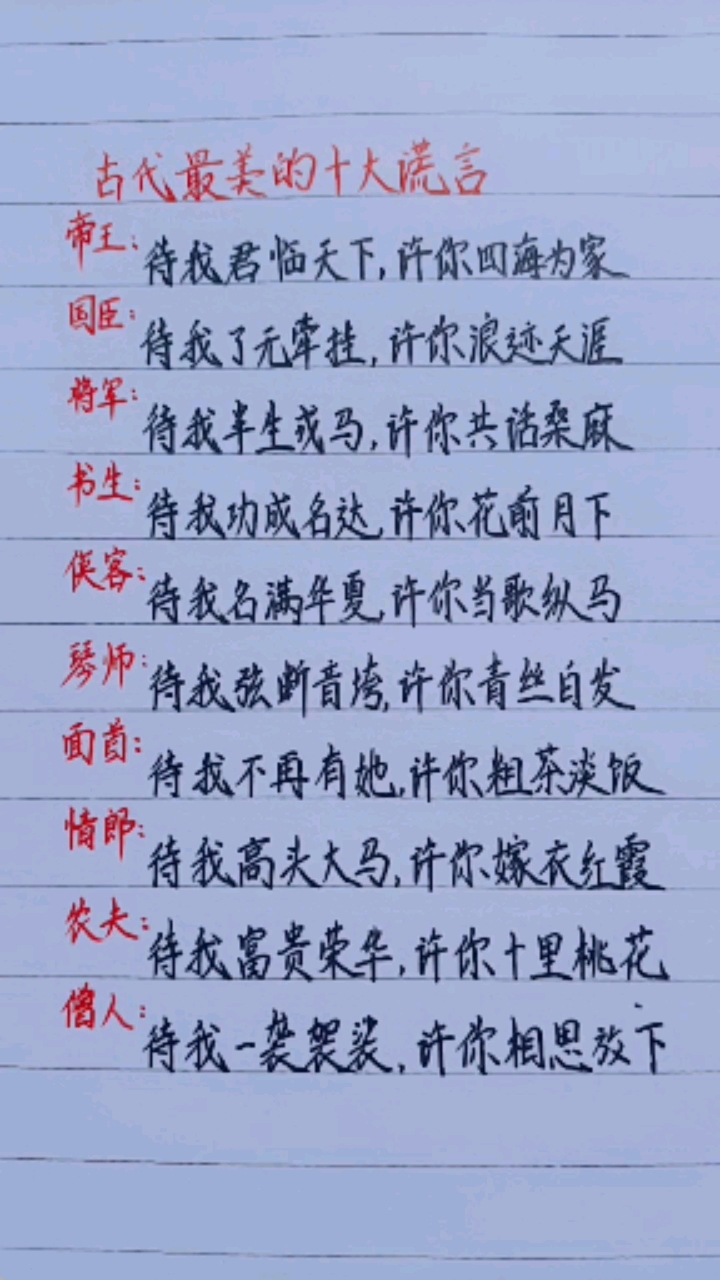 古代最美的十大谎言
帝王：待我君临天下，许你四海为家
国臣：待我了无牵挂，许你浪迹天涯
将军：待我半生戎马，许你共话桑麻
书生：待我功成名达，许你花前月下
侠客：待我名满华夏，许你当歌纵马
琴师：待我弦断音垮，许你青丝白发
面首：待我不再有她，许你粗茶淡饭
情郎：待我高头大马，许你嫁衣红霞
农夫：待我富贵荣华，许你十里桃花
僧人：待我一袭袈裟，许你相思放下